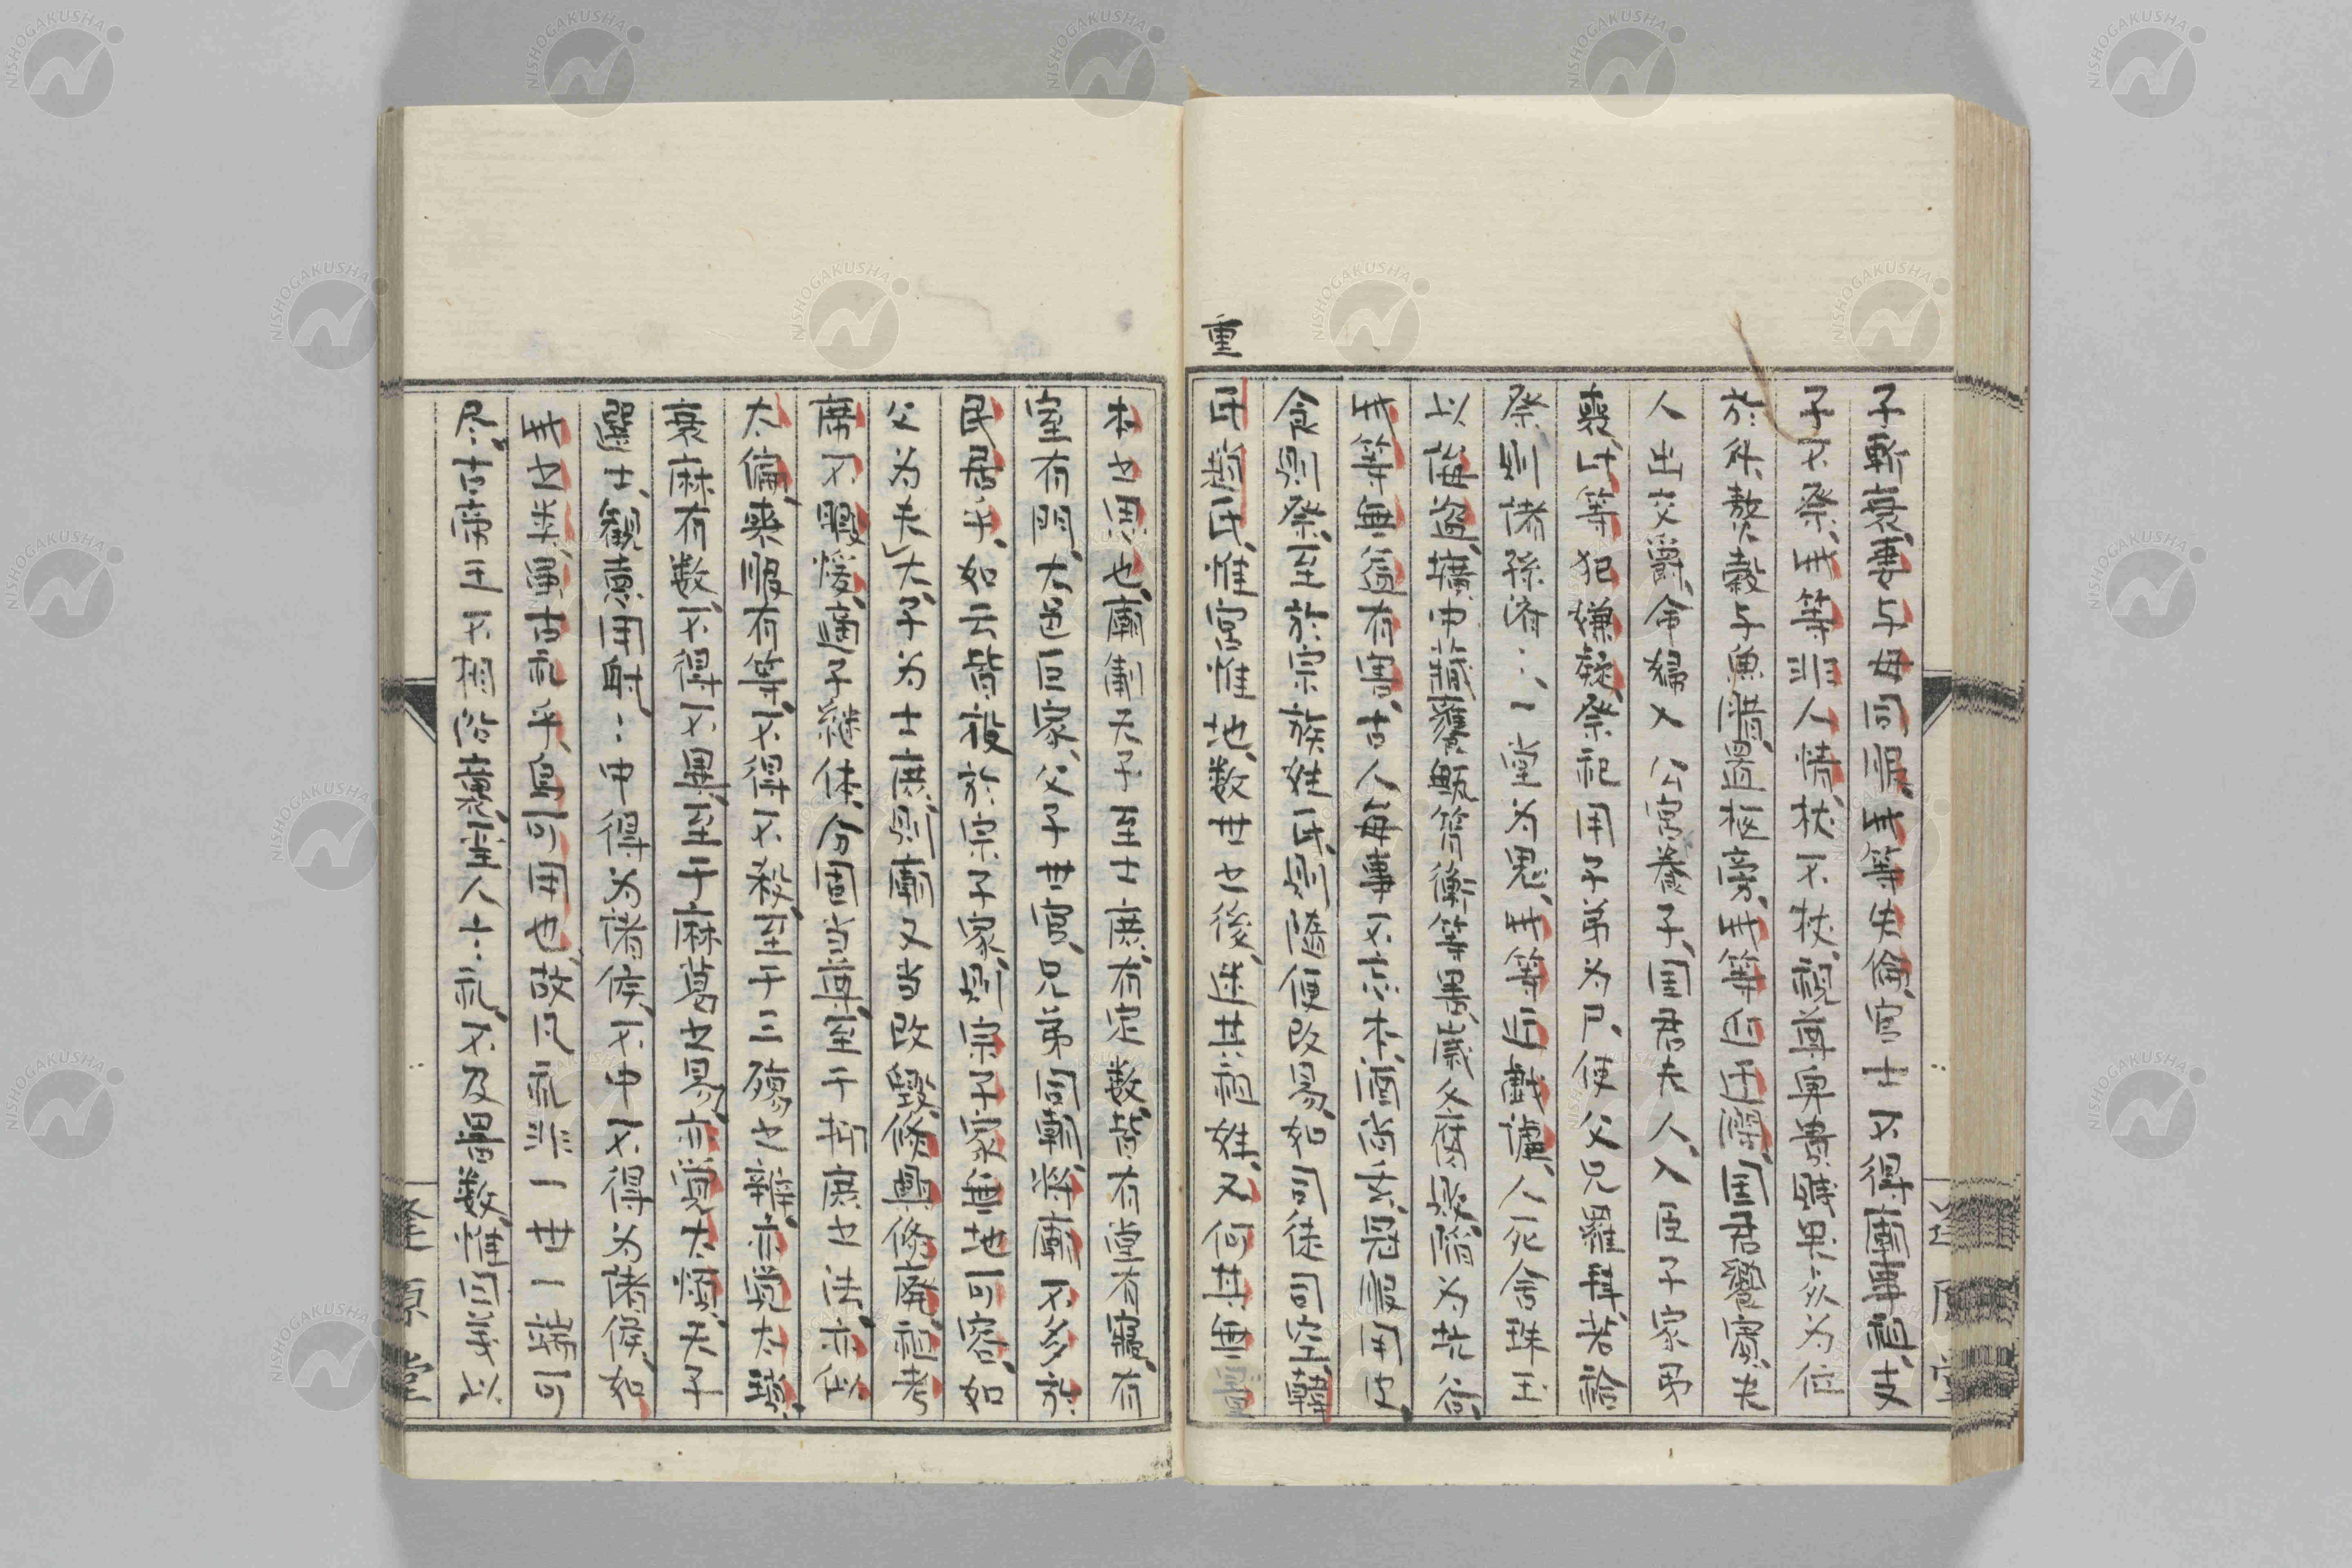 重
子斬衰妻与母同服此等失倫官士不得廟事祖支
子不祭此等非人情杖不杖視尊卑貴賤異衰為位
於外熬穀与魚腊置柩旁此等近迂僻国君饗賓夫
人出交爵命婦入公宮養子国君夫人入臣子家弔
喪此等犯嫌疑祭祀用子弟為尸使父兄羅拜若諭
祭則諸孫済々一堂為鬼此等近戯謔人死含珠玉
以誨盗壙中蔵甕甒筲衡等異歳久腐敗陥為坑谷
此等無益有害古人毎事不忘本酒尚玄冠服用皮
食則祭至於宗族姓氏則随便改易如司徒司空韓
氏趙氏惟官惟地数世之後迷其祖姓又何其無
本之思也廟制天子至士庶有定数皆有堂有寝有
室有門大邑巨家父子世官兄弟同朝将廟不多於
民居乎如云皆設於宗子家則宗子家無地可容如
父為大夫子為士庶則廟又当改毀倏興倏廃祖考
席不暇煖適子継体分固当尊至于抑庶之法亦似
太偏喪服有等不得不殺至于三殤之辨亦覚太瑣
衰麻有数不得不異至于麻葛之易亦覚太煩天子
選士観徳用射々中得為諸侯不中不得為諸侯如
此之類異古礼乎烏可用也故凡礼非一世一端可
尽古帝王不相沿襲聖人言礼不及器数惟曰義以
NISHOGAKUSHA